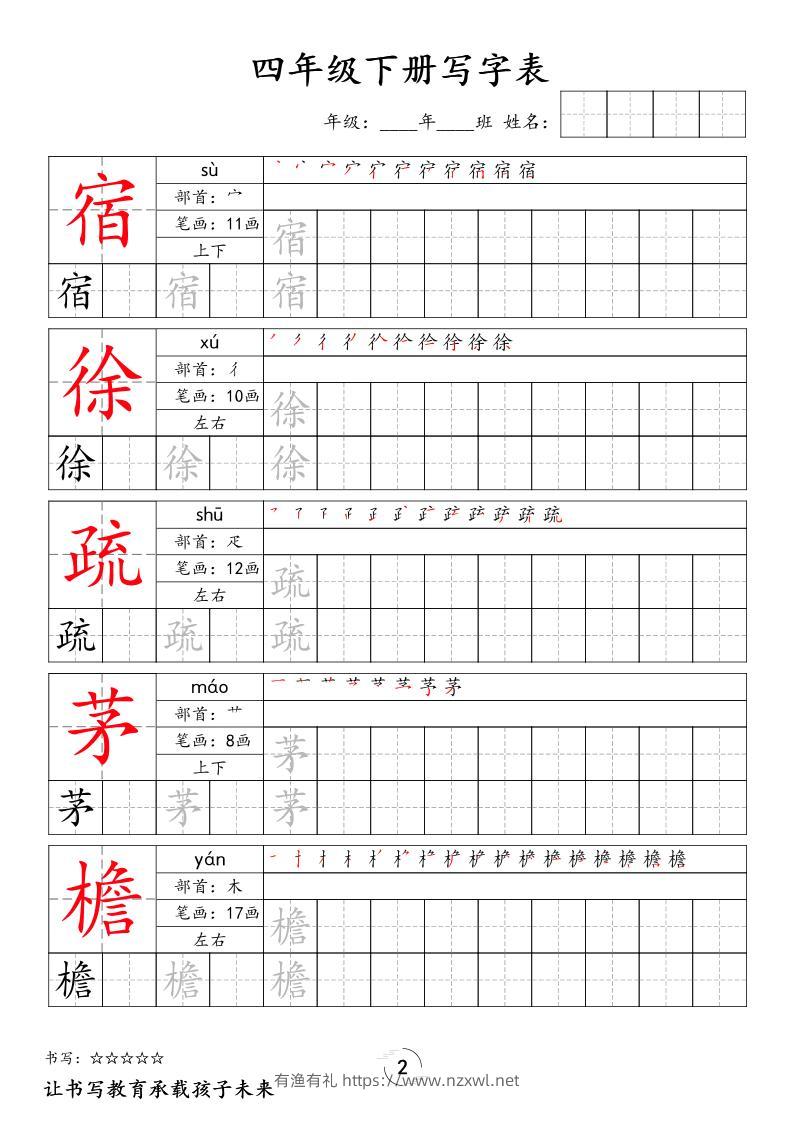 四年级下册写字表
年级：____年____班 姓名：
宿
sù
部首：宀
笔画：11画
上下
宿
宿
宿 宿 宿
徐
xú
部首：彳
笔画：10画
左右
徐
徐
徐 徐 徐
疏
shū
部首：疋
笔画：12画
左右
疏
疏
疏 疏 疏
茅
máo
部首：艹
笔画：8画
上下
茅
茅
茅 茅 茅
檐
yán
部首：木
笔画：17画
左右
檐
檐
檐 檐 檐
书写：☆☆☆☆☆
2
让书写教育承载孩子未来
有渔有礼 https://www.nzxwl.net